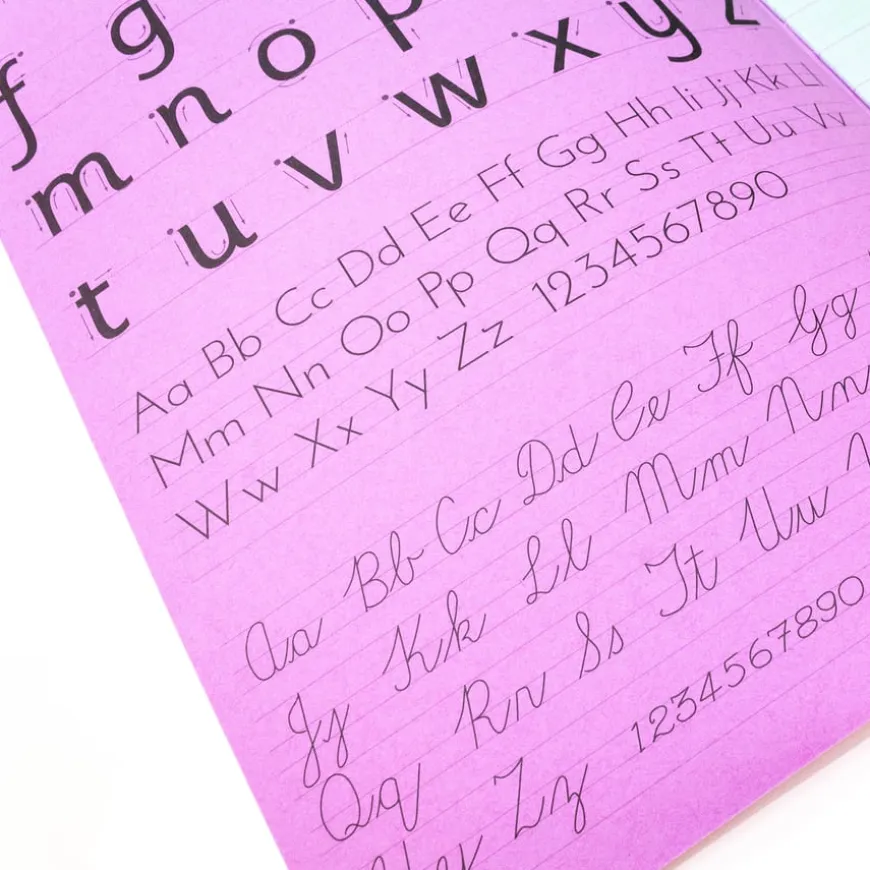 f g
m n o p
t u v w x y z
Aa Bb Cc Dd Ee Ff Gg Hh Ii Jj Kk Ll
Mm Nn Oo Pp Qq Rr Ss Tt Uu Vv
Ww Xx Yy Zz 1234567890
Aa Bb Cc Dd Ee Ff Gg
Jj Kk Ll Mm Nn
Qq Rr Ss Tt Uu
Zz 1234567890